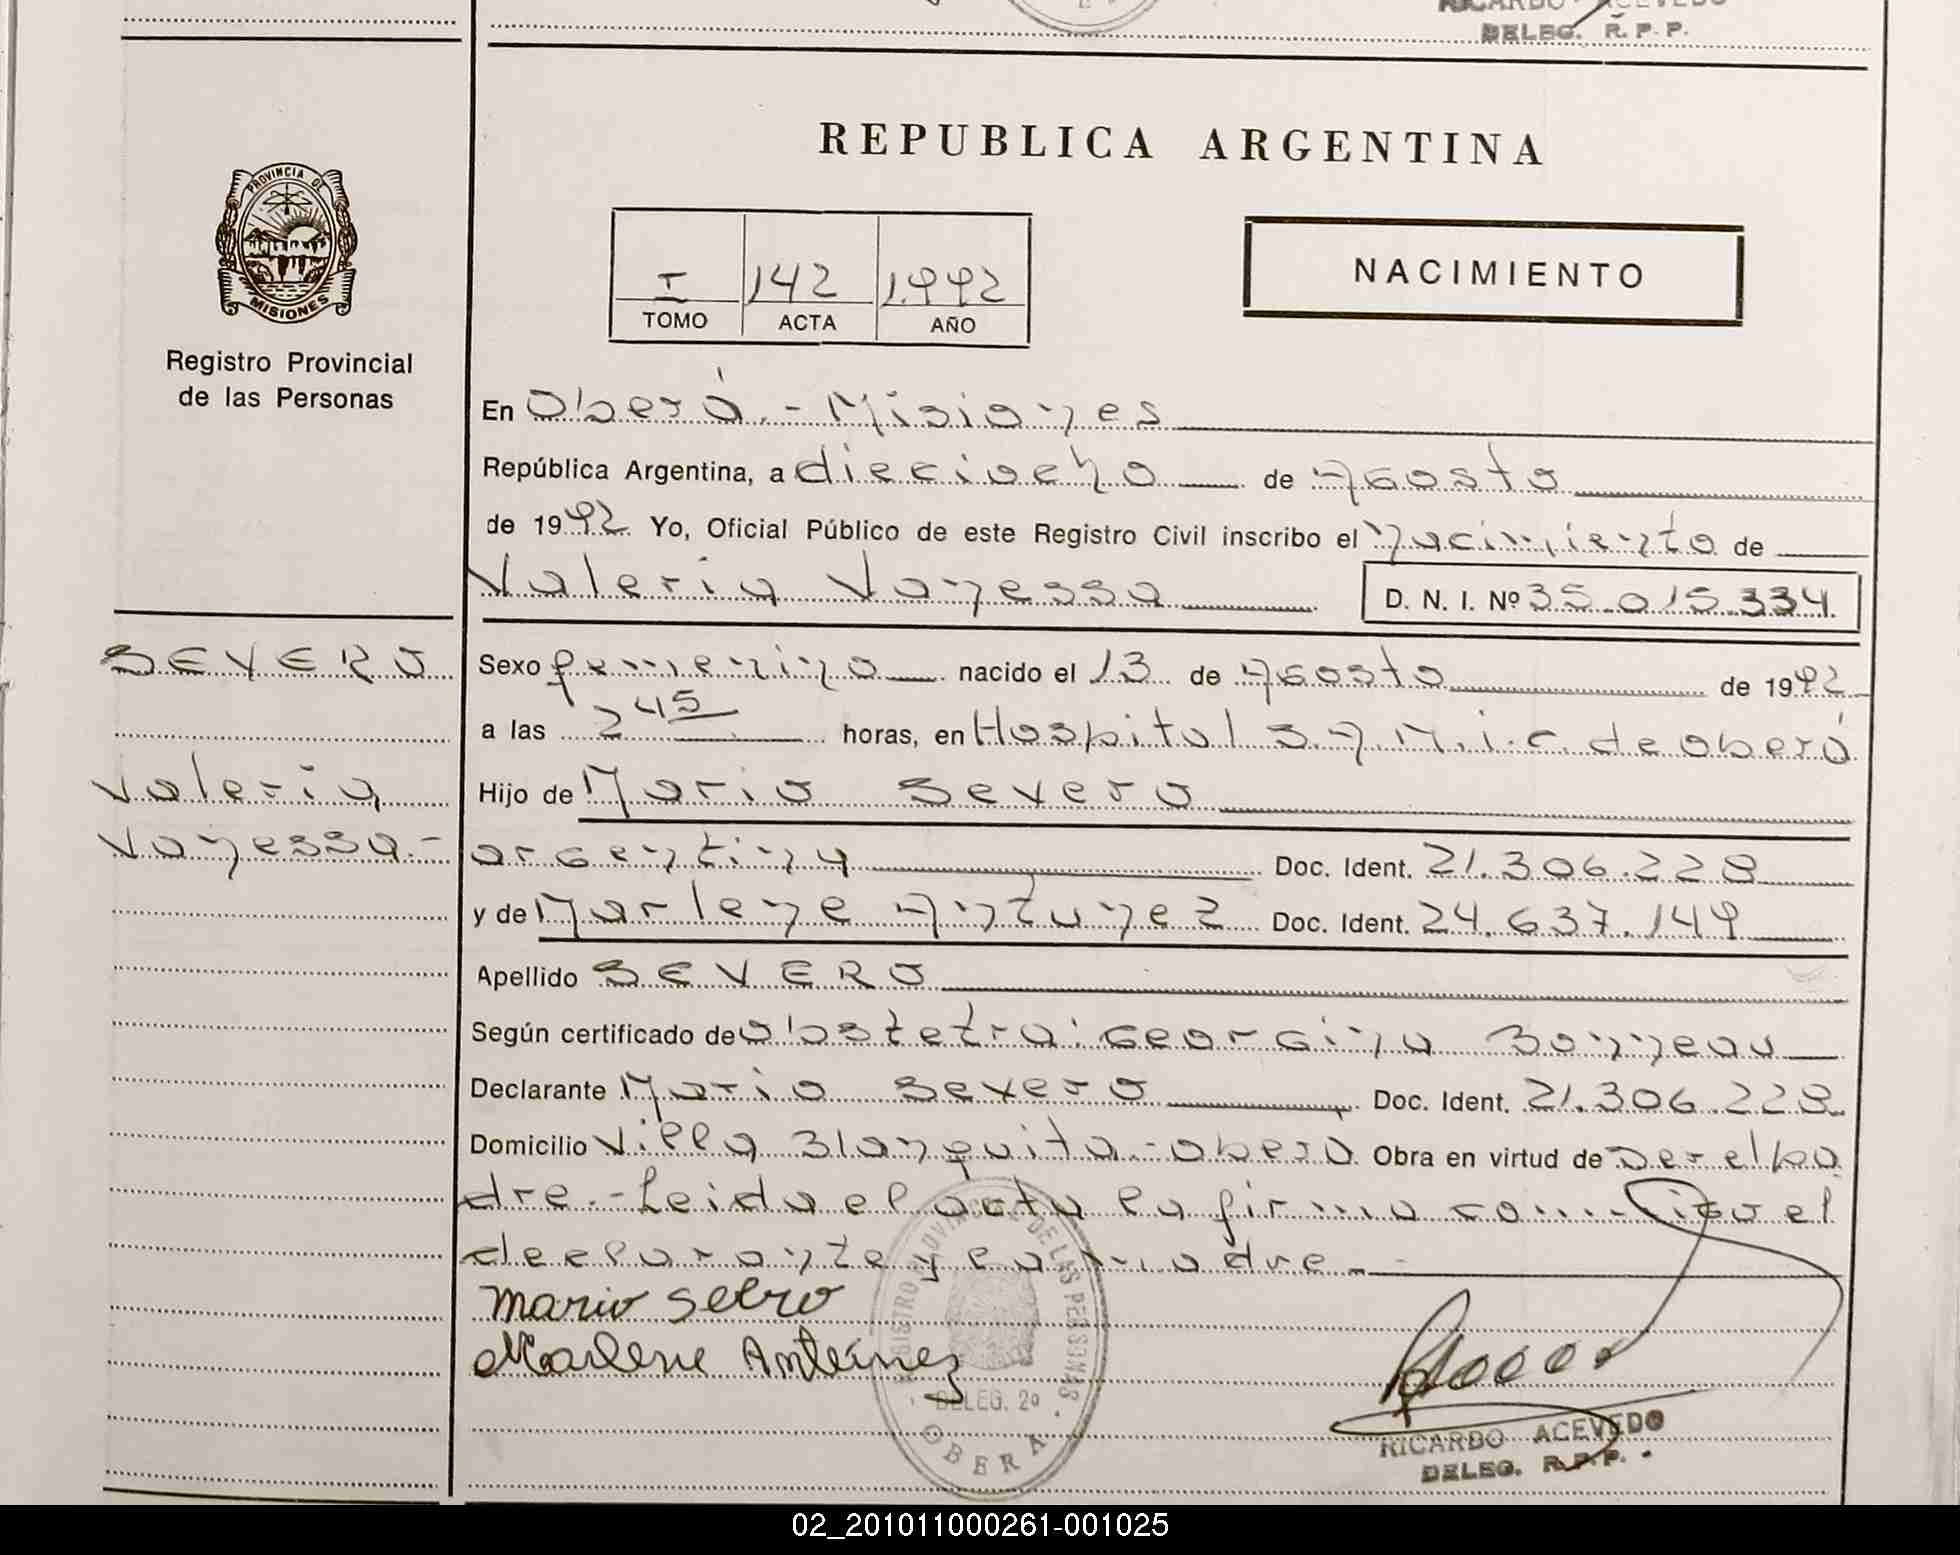 RICARDO ACEVEDO
DELEG. R. P. P.
REPUBLICA ARGENTINA
PROVINCIA DE
MISIONES
Registro Provincial
de las Personas
I 142 1.992
TOMO ACTA AÑO
NACIMIENTO
En Oberá.- Misiones
República Argentina, a dieciocho de Agosto
de 1992 Yo, Oficial Público de este Registro Civil inscribo el nacimiento de
Valeria Vanessa D. N. I. Nº 35.015.334.
SEVERO
Valeria
Vanessa.-
Sexo femenino nacido el 13 de Agosto de 1992
a las 2 45 horas, en Hospital S.A.M.i.c. de oberá
Hijo de Mario Severo
argentina Doc. Ident. 21.306.228
y de Marlene Antunez Doc. Ident. 24.637.149
Apellido SEVERO
Según certificado de obstetra: Georgina Bonneau
Declarante Mario Severo Doc. Ident. 21.306.228
Domicilio Villa Blanquita.-oberá Obra en virtud de Ser el pa
dre.-Leida el acta la firma conmigo el
declarante y la madre.-
mario sebro
Marlene Antúnez
REGISTRO PROVINCIAL DE LAS PERSONAS
DELEG. 2º
OBERA
RICARDO ACEVEDO
DELEG. R.P.P.
02_201011000261-001025